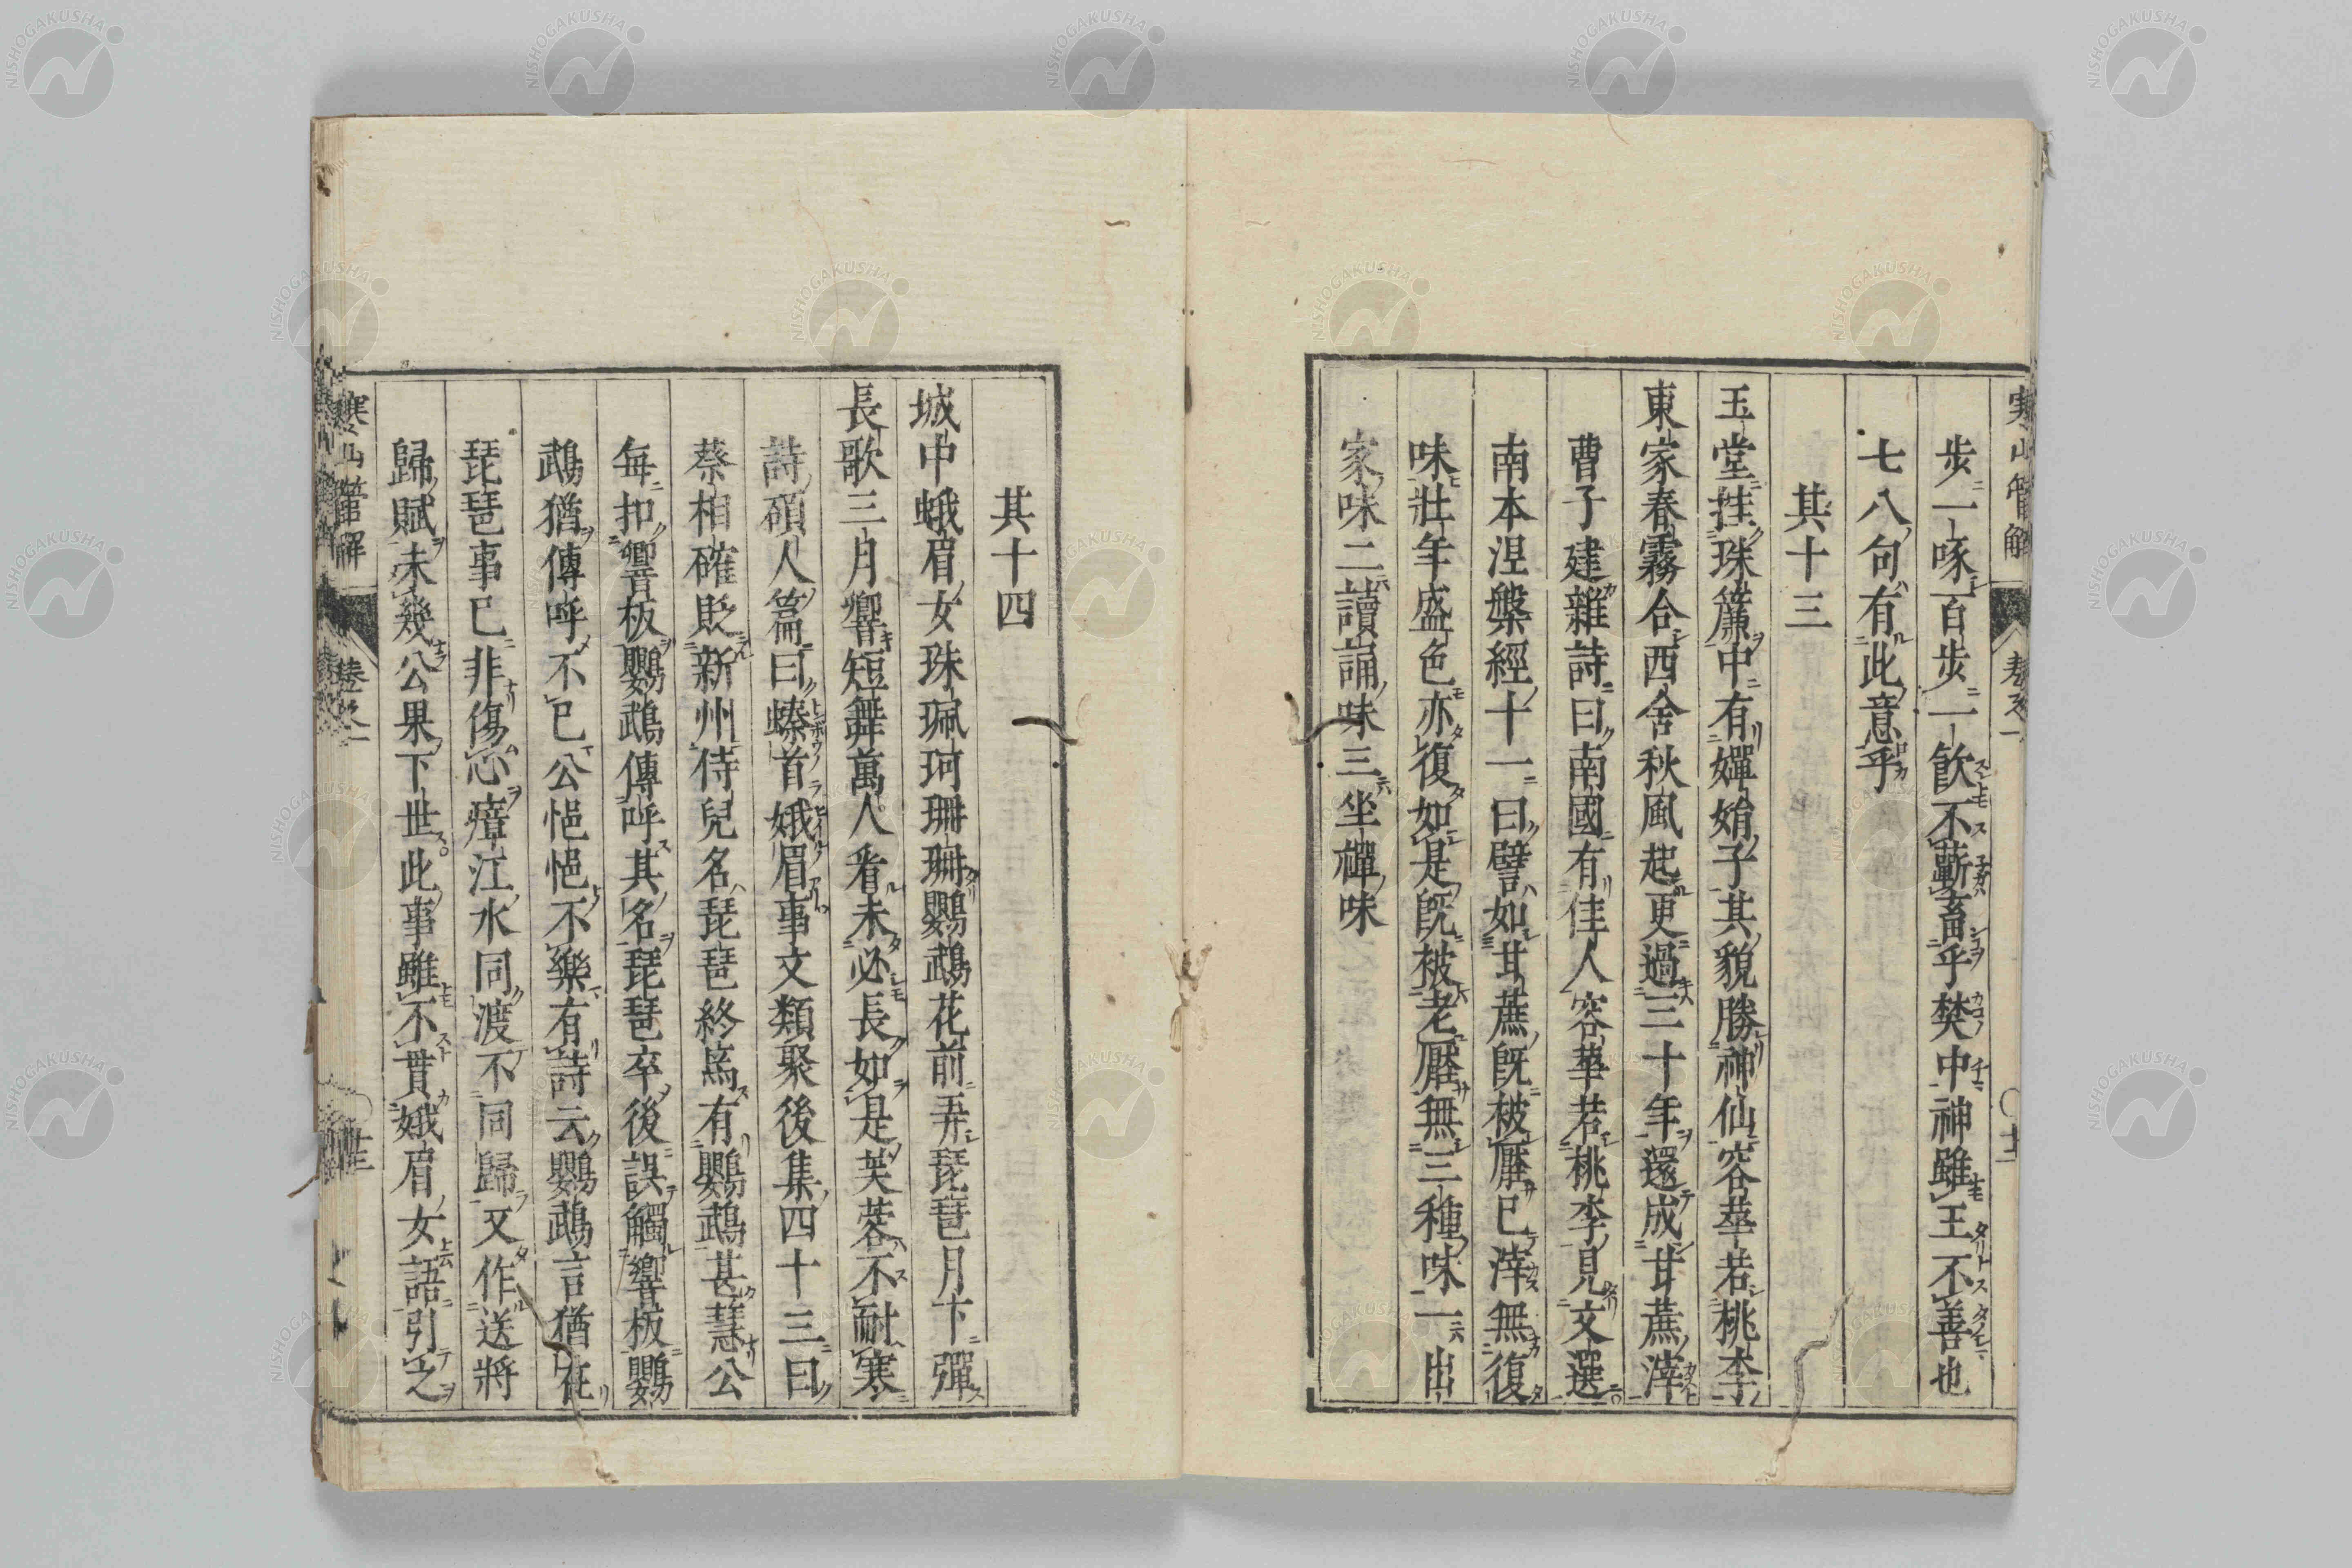 步一啄百步一飲不蘄畜乎樊中神雖王不善也
七八句有此意乎
其十三
玉堂挂珠簾中有嬋娟子其貌勝神仙容華若桃李
東家春霧合西舍秋風起更過三十年還成甘蔗滓
曹子建雜詩曰南國有佳人容華若桃李見文選
南本涅槃經十一曰譬如甘蔗既被壓已滓無復
味壯年盛色亦復如是既被老壓無三種味一出
家味二讀誦味三坐禪味
其十四
城中蛾眉女珠珮珂珊珊鸚鵡花前弄琵琶月下彈
長歌三月響短舞萬人看未必長如是芙蓉不耐寒
詩碩人篇曰螓首娥眉事文類聚後集四十三曰
蔡相確貶新州侍兒名琵琶終焉有鸚鵡甚慧公
每扣響板鸚鵡傳呼其名琵琶卒後誤觸響板鸚
鵡猶傳呼不已公悒悒不樂有詩云鸚鵡言猶在
琵琶事已非傷心瘴江水同渡不同歸又作送將
歸賦未幾公果下世此事雖不貫娥眉女語引之
寒山管解
卷之一
NISHOGAKUSHA